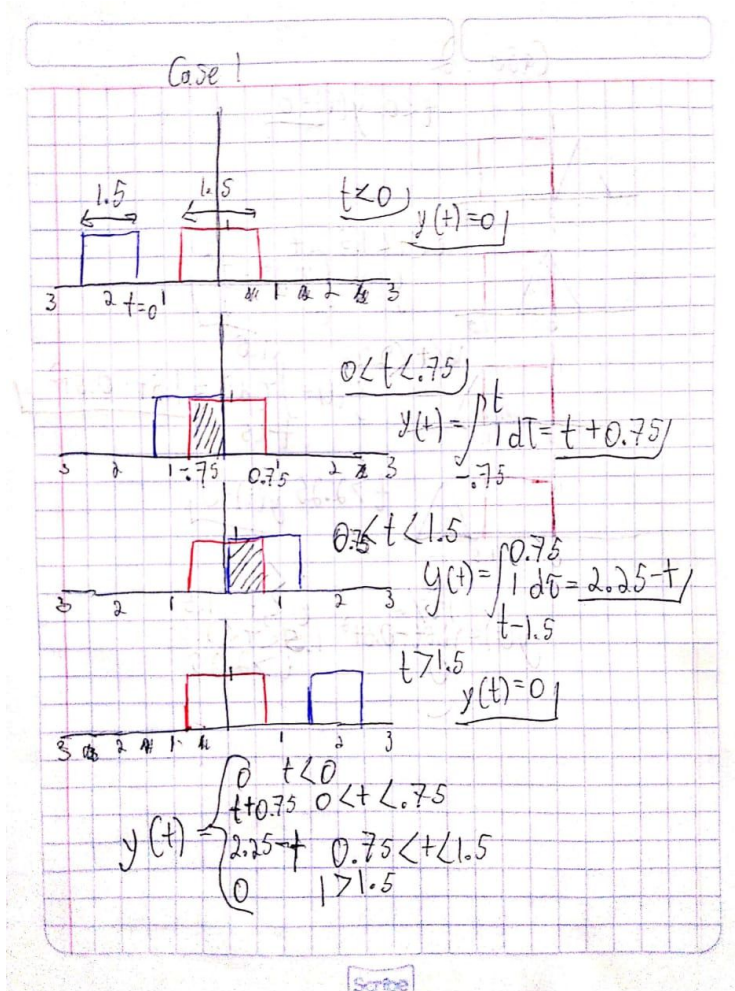 Case 1
1.5 1.5
t<0
y(t)=0
1
3 2 t=0 1 1 2 3
0<t<.75
1
y(t)=∫_{-.75}^{t} 1 dτ = t+0.75
3 2 1 -.75 0.75 1 2 3
0.75<t<1.5
1
y(t)=∫_{t-1.5}^{0.75} 1 dτ = 2.25-t
3 2 1 1 2 3
t>1.5
1
y(t)=0
3 2 1 1 2 3
0 t<0
t+0.75 0<t<.75
y(t)={
2.25-t 0.75<t<1.5
0 1>1.5
Scribe